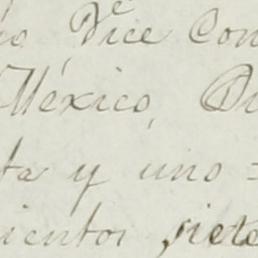 Vice Con
México,
ta y uno =
cientos siete